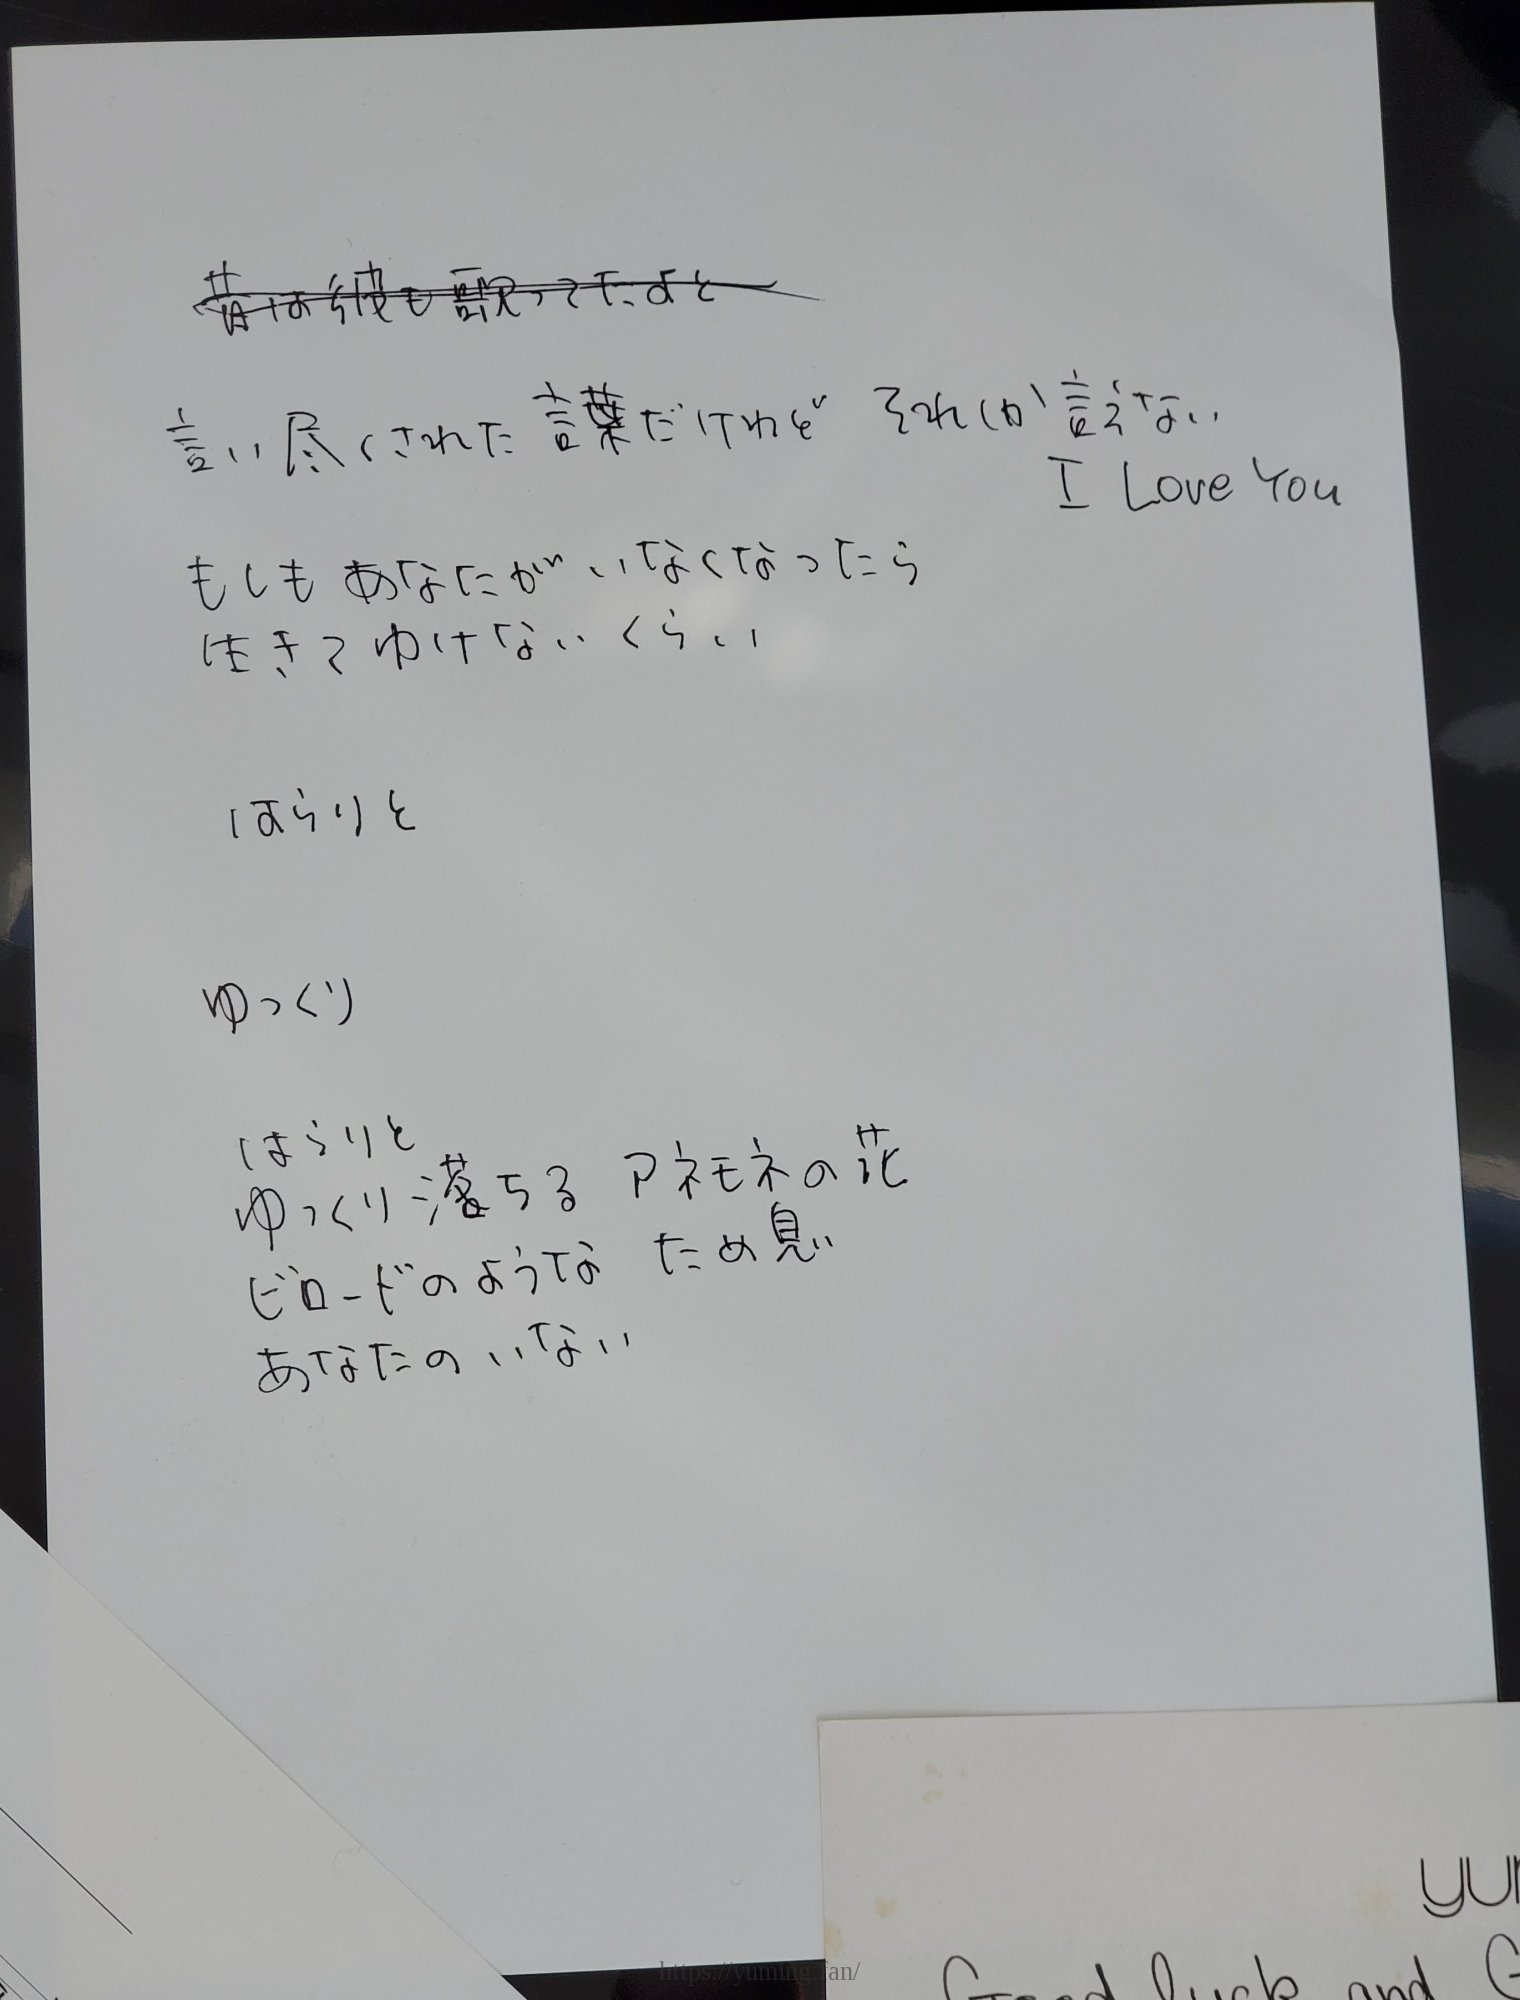 昔は彼も歌ってたよと
言い尽くされた言葉だけれど それしか言えない
I Love You
もしもあなたがいなくなったら
生きてゆけないくらい
はらりと
ゆっくり
はらりと
ゆっくり落ちる アネモネの花
ビロードのような ため息
あなたのいない
yu
Good luck and G
https://yuming.fan/